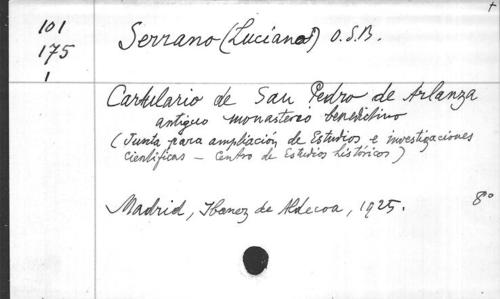 +
101
175
1
Serrano (Luciano) O.S.B.
Cartulario de San Pedro de Arlanza
antiguo monasterio benedictino
(Junta para ampliación de Estudios e investigaciones
cientificas – Centro de Estudios históricos)
Madrid, Ibanez de Aldecoa, 1925.
8°